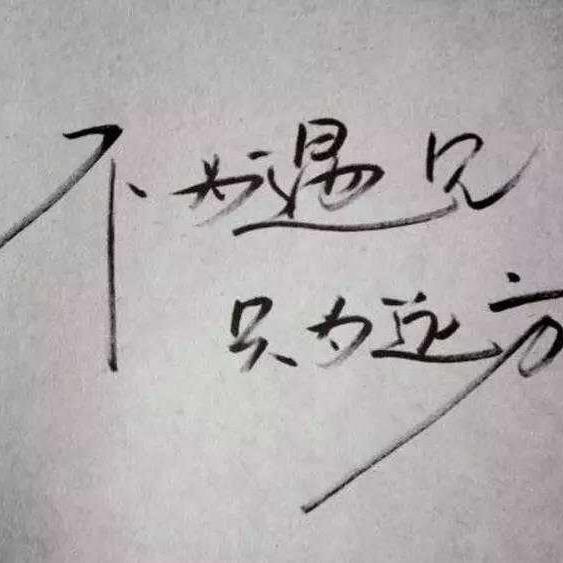 不为遇见
只为远方